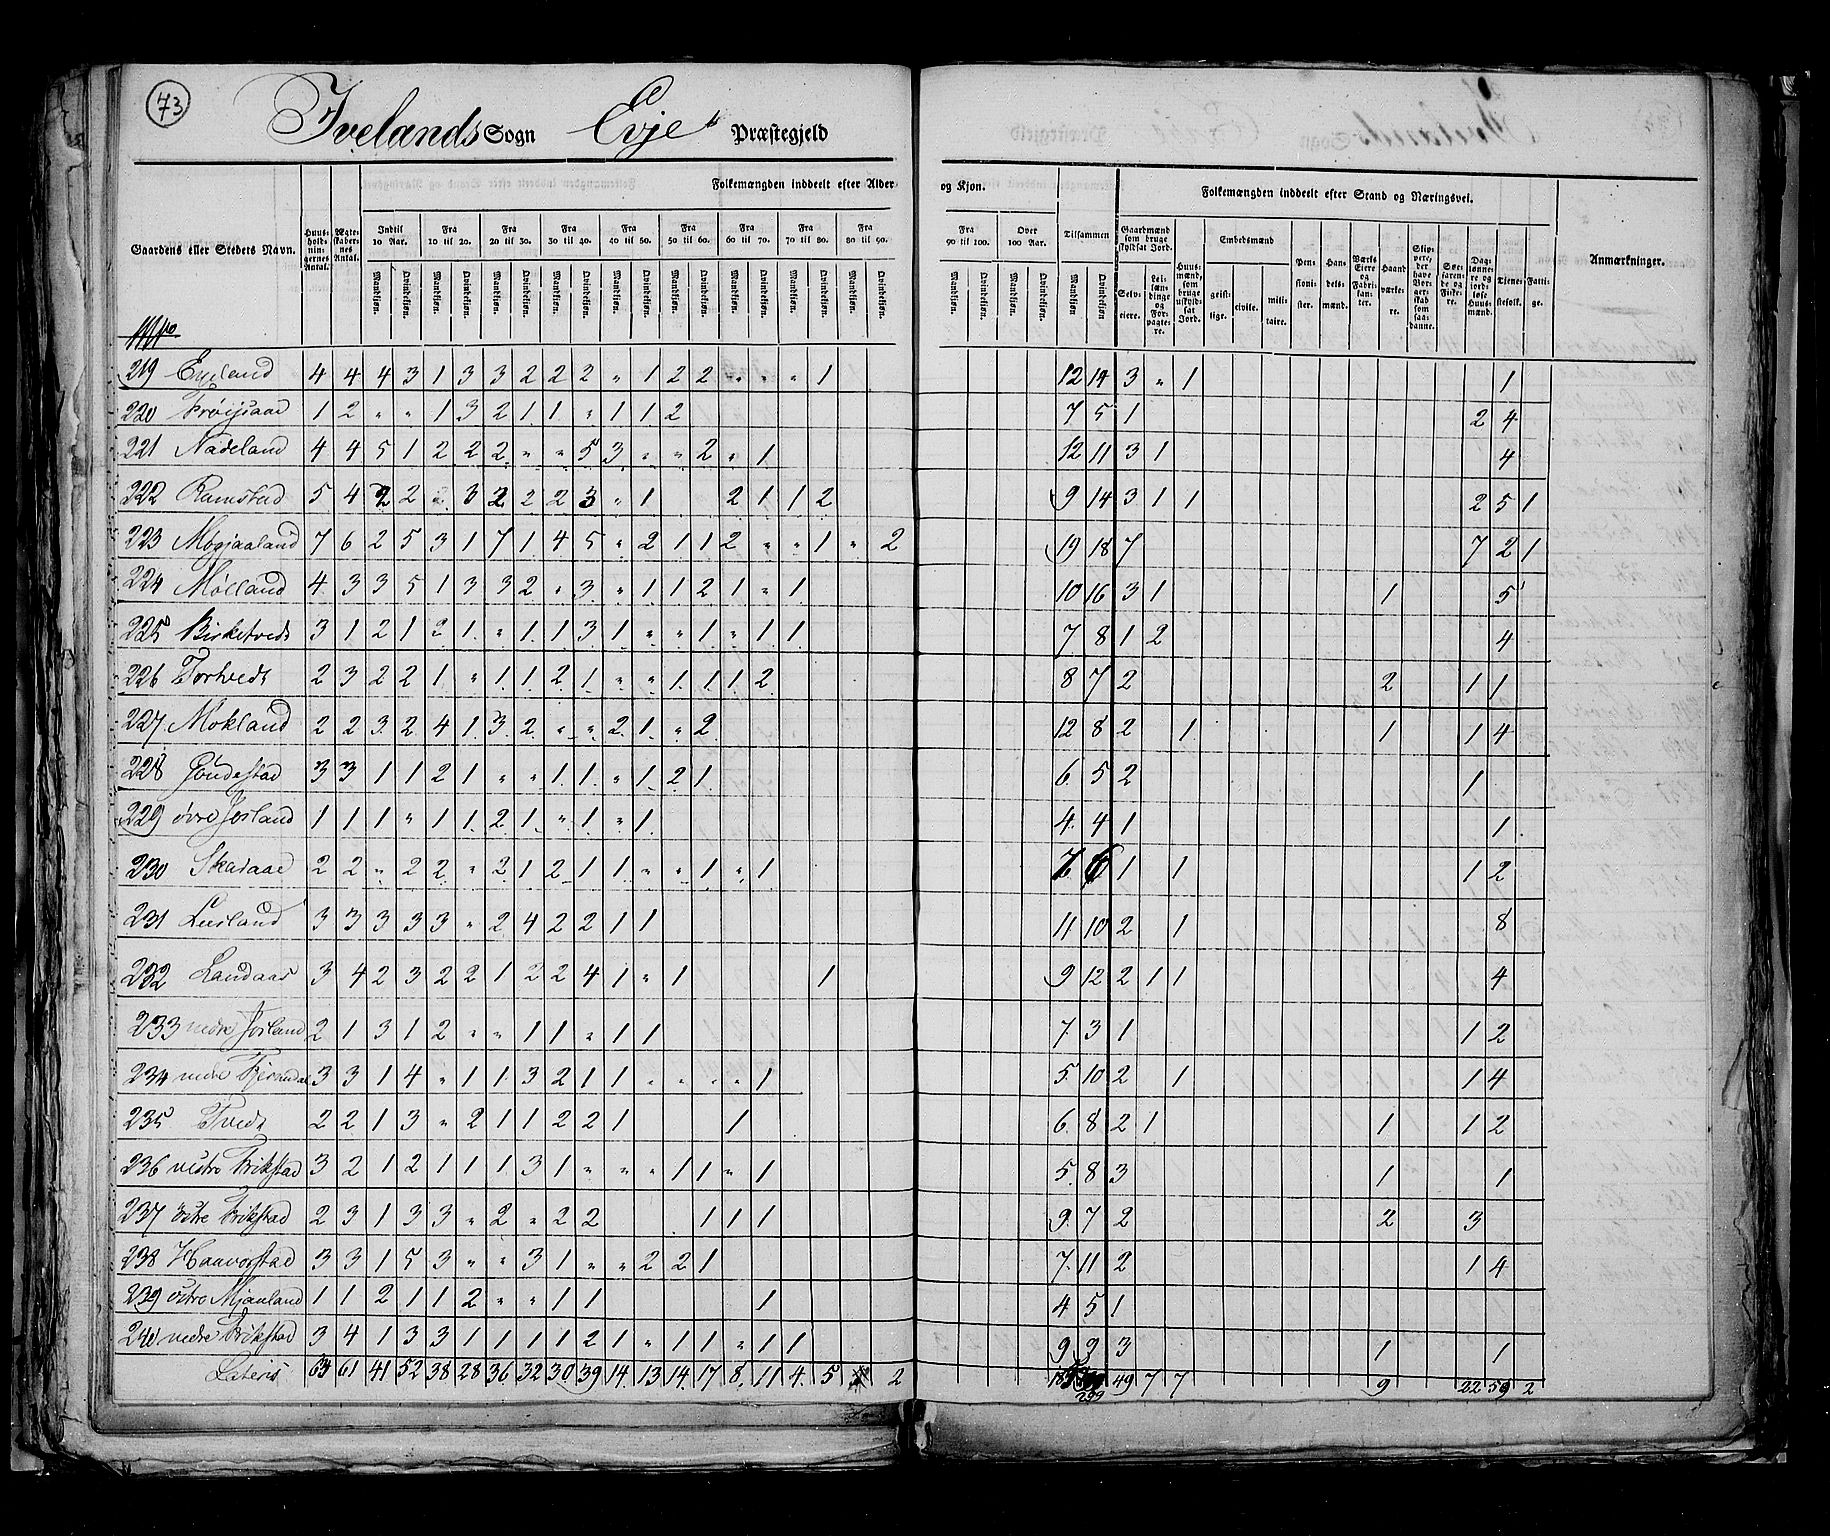 73
Ivelands Sogn Evje Præstegjeld
Folkemængden inddeelt efter Alder og Kjøn.
Folkemængden inddeelt efter Stand og Næringsvei.
Gaardens eller Stedets Navn. Huusholdningernes Antal. Ægteskabernes Antal. Indtil 10 Aar. Fra 10 til 20. Fra 20 til 30. Fra 30 til 40. Fra 40 til 50. Fra 50 til 60. Fra 60 til 70. Fra 70 til 80. Fra 80 til 90. Fra 90 til 100. Over 100 Aar. Tilsammen
Mandkjøn. Qvindekjøn.
Gaardmænd som bruge skyldsat Jord. Selveiere. Leilændinge og Forpagtere. Huusmænd, som bruge uskyldsat Jord. Embedsmænd geistlige. civile. militaire. Pensionister. Handelsmænd. Værks Eiere og Fabrikanter. Haandværkere. Søefarende og Fiskere. Daglønnere og jordløse Huusmænd. Tjenestefolk. Fattige. Anmærkninger.
219 4 4 4 3 1 3 3 2 2 2 " 1 2 2 " " " 1 12 14 3 " 1 1
220 Frøijsaae 1 2 " " 1 3 2 1 1 " 1 1 2 7 5 1 2 4
221 Nadeland 4 4 5 1 2 2 2 " " 5 3 " " 2 " 1 12 11 3 1 4
222 Ramstad 5 4 2 2 " 3 2 2 2 3 " 1 2 1 1 2 9 14 3 1 1 2 5 1
223 Mogjaaland 7 6 2 5 3 1 7 1 4 5 " 2 1 1 2 " " 1 " 2 19 18 7 7 2 1
224 Mølland 4 3 3 5 1 3 3 2 " 3 " 1 1 2 1 " 1 10 16 3 1 1 5
225 Birketvedt 3 1 2 1 2 1 " 1 1 3 1 " " 1 " 1 1 7 8 1 2 4
226 Tortvedt 2 3 2 2 1 " 1 1 2 1 " " 1 1 1 2 8 7 2 2 1 1
227 Mokland 2 2 3 2 4 1 3 2 " " 2 1 " 2 12 8 2 1 1 1 4
228 3 3 1 1 2 1 " " 1 1 " 1 2 1 6 5 2 1
229 øvre Josland 1 1 1 " 1 1 2 1 " 1 " 1 4 4 1 1
230 Skaiaae 2 2 " 2 2 " 2 1 2 1 1 " " 1 " 1 7 6 1 1 1 2
231 3 3 3 3 3 " 2 4 2 2 1 1 11 10 2 1 8
232 Landaas 3 4 2 3 2 2 1 2 2 4 1 " 1 1 9 12 2 1 1 4
233 nedre Josland 2 1 3 1 2 " " 1 1 " 1 1 7 3 1 1 2
234 nedre 3 3 1 4 " 1 1 3 2 1 1 " " " " 1 5 10 2 1 1 4
235 Tvedt 2 2 1 3 " 2 1 1 2 2 1 1 6 8 2 1 1 1 2
236 vestre Frikstad 3 2 1 2 1 1 1 3 1 " " " 1 1 " 1 5 8 3 1 1
237 østre Frikstad 2 3 1 3 3 " 2 " 2 2 1 1 1 9 7 2 2 3
238 Haavorstad 3 3 1 5 3 " " 3 1 " " 2 2 1 7 11 2 1 4
239 østre Mjauland 1 1 2 1 1 2 " " 1 1 1 4 5 1
240 nedre Frikstad 3 4 1 3 3 1 1 1 1 2 1 " 1 1 " 1 1 9 9 3 1 1
Lateris 63 61 41 52 38 28 36 32 30 39 14 13 14 17 8 11 4 5 2 49 7 7 9 22 59 2